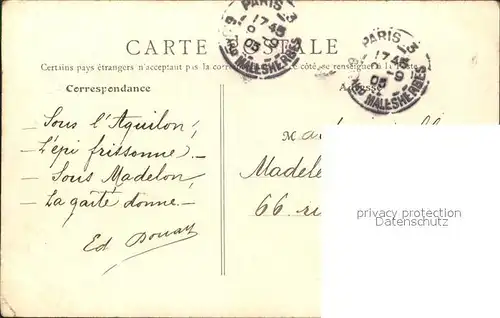 CARTE POSTALE
Certains pays étrangers n'acceptant pas la correspondance de ce côté, se renseigner à la Poste
Correspondance
Adresse
PARIS 3
17 45
R. MALESHERBES
PARIS 3
17 45
05
R. MALESHERBES
— Sous l'Aquilon,
— L'épi frissonne. —
— Sous Madelon,
— La gaîté donne. —
Ed Douay
M
Madele
66 ru
privacy protection
Datenschutz